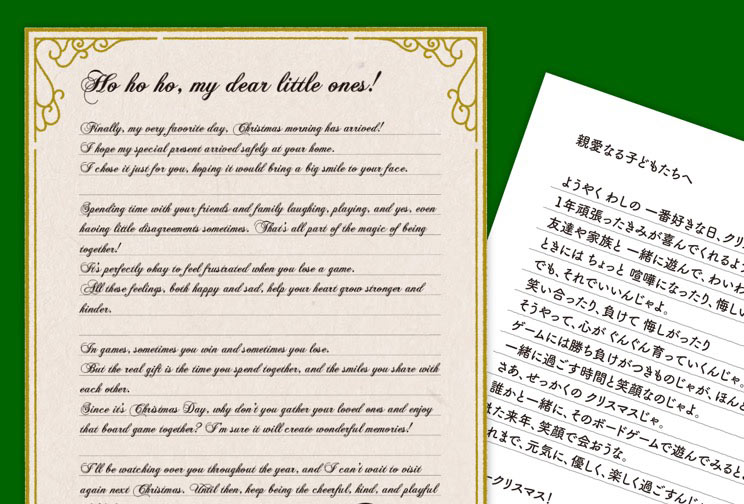 Ho ho ho, my dear little ones!
Finally, my very favorite day, Christmas morning has arrived!
I hope my special present arrived safely at your home.
I chose it just for you, hoping it would bring a big smile to your face.
Spending time with your friends and family laughing, playing, and yes, even
having little disagreements sometimes. That's all part of the magic of being
together!
It's perfectly okay to feel frustrated when you lose a game.
All these feelings, both happy and sad, help your heart grow stronger and
kinder.
In games, sometimes you win and sometimes you lose.
But the real gift is the time you spend together, and the smiles you share with
each other.
Since it's Christmas Day, why don't you gather your loved ones and enjoy
that board game together? I'm sure it will create wonderful memories!
I'll be watching over you throughout the year, and I can't wait to visit
again next Christmas. Until then, keep being the cheerful, kind, and playful
親愛なる子どもたちへ
ようやく わしの 一番好きな日、クリ
1年頑張ったきみが喜んでくれるよ
友達や家族と 一緒に遊んで、わいわ
ときには ちょっと 喧嘩になったり、悔し
でも、それでいいんじゃよ。
笑い合ったり、負けて 悔しがったり
そうやって、心が ぐんぐん育っていくんじゃよ。
ゲームには勝ち負けがつきものじゃが、ほん
一緒に過ごす時間と笑顔なのじゃよ。
さあ、せっかくの クリスマスじゃ。
誰かと一緒に、そのボードゲームで遊んでみると
また来年、笑顔で会おうな。
れまで、元気に、優しく、楽しく過ごすんじ
ークリスマス!